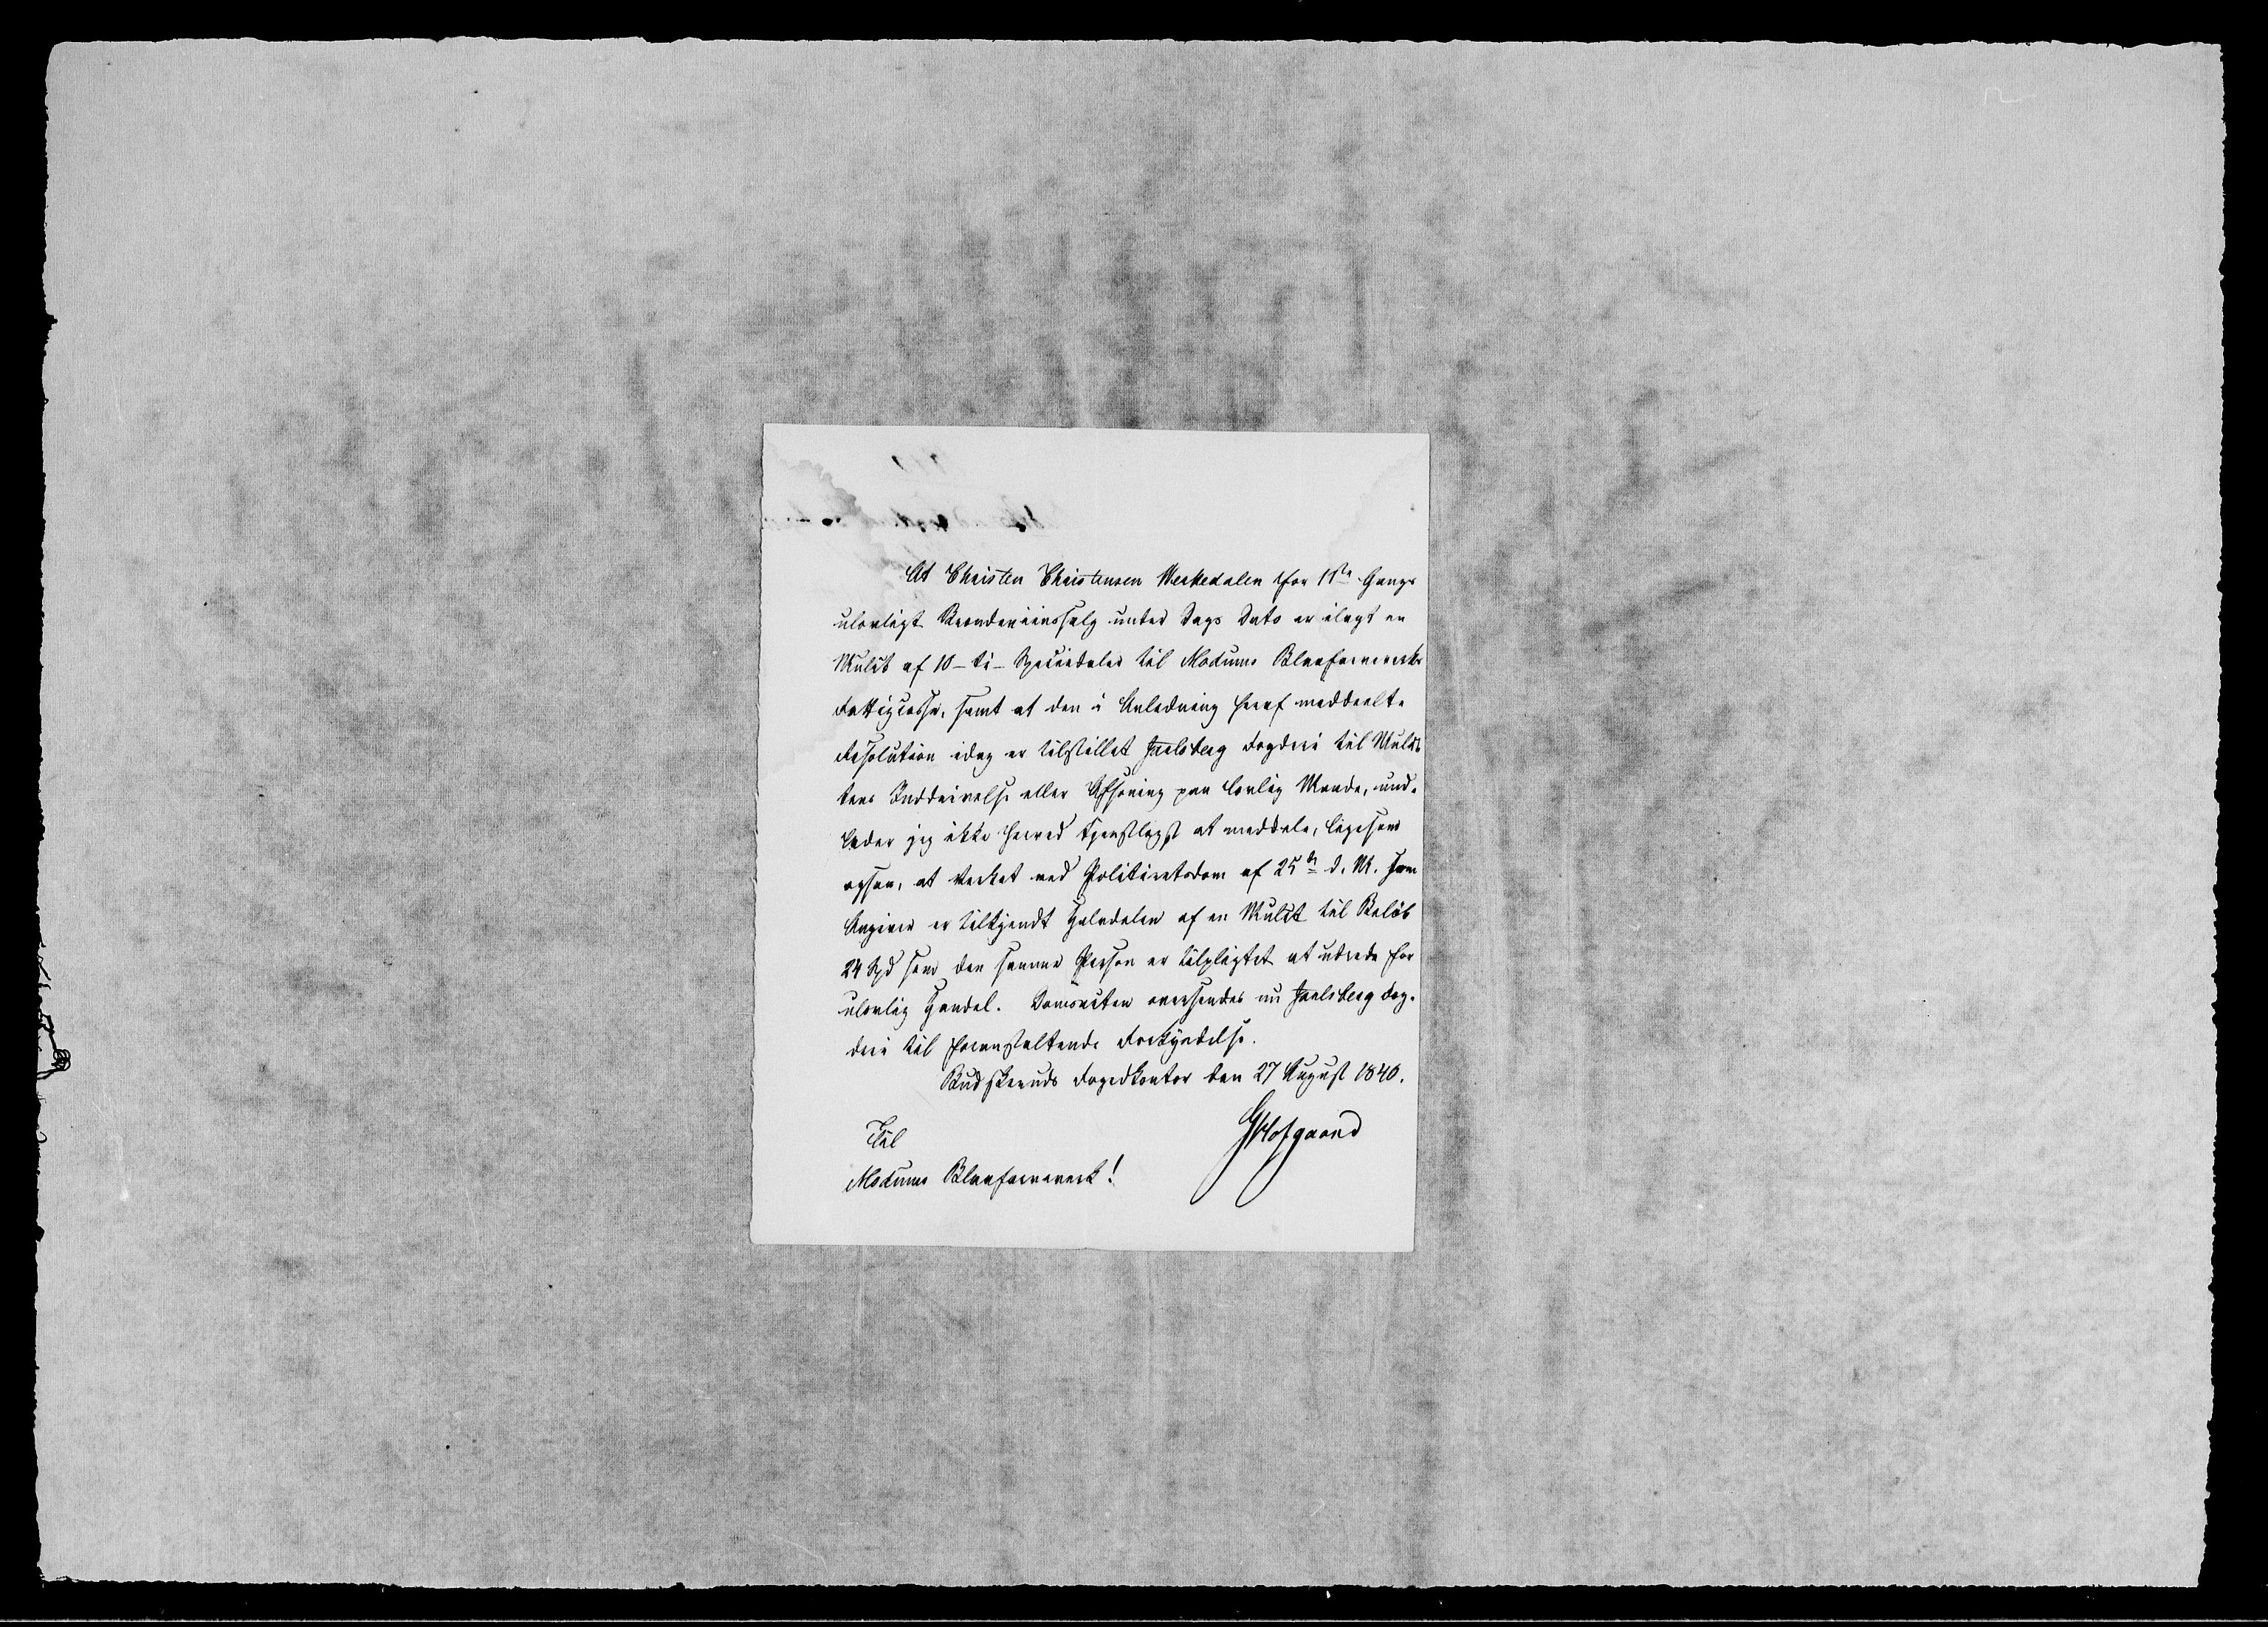 At Christen Christensen Merkedalen for 1ste Gangs
ulovligt Brændeviinssalg under Dags Dato er ilagt en
Mulct af 10 - ti - Speciedaler til Modums Blaafarveværks
Fattigcasse, samt at den i Anledning heraf meddeelte
Resolution idag er tilstillet Jarlsberg Fogderi til Mulc-
tens Inddrivelse eller Afsoning paa lovlig Maade, und-
lader jeg ikke herved tjenstligst at meddele, ligesom
ogsaa, at Verket ved Politieretsdom af 25de d. M. som
Angiver er tilkjendt Halvdelen af en Mulct til Beløb
24 Spd som den samme Person er tilpligtet at udrede for
ulovlig Handel. Domsacten oversendes nu Jarlsberg Fog-
deri til foranstaltende Forkyndelse.
Budskeruds Fogedkontor den 27 August 1840.
Hofgaard
Til
Modums Blaafarveverk!